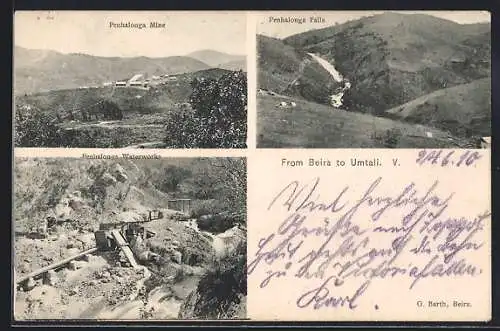 Penhalonga Mine
Penhalonga Falls
Penhalonga Waterworks
From Beira to Umtali. V.
Viel herzliche
Grüße und
auf Bahn
zu Victoriafällen.
Karl.
G. Barth, Beira.